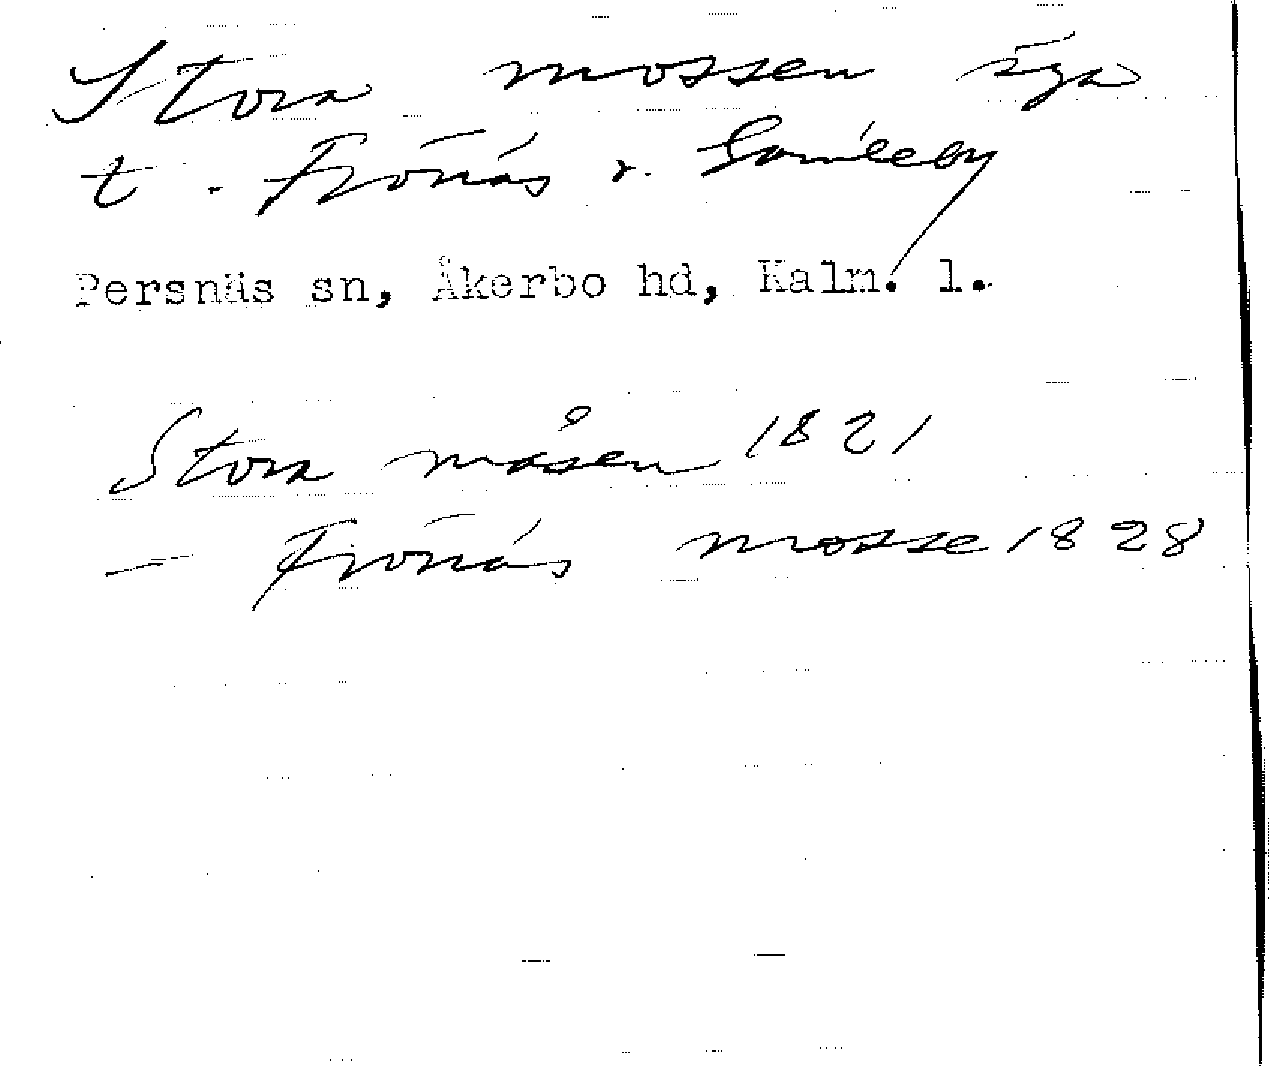 Stora mossen äga
t. Frönäs o. Gamleby
Persnäs sn, Åkerbo hd, Kalm. l.
Stora måsen 1821
— Frönäs mosse 1828